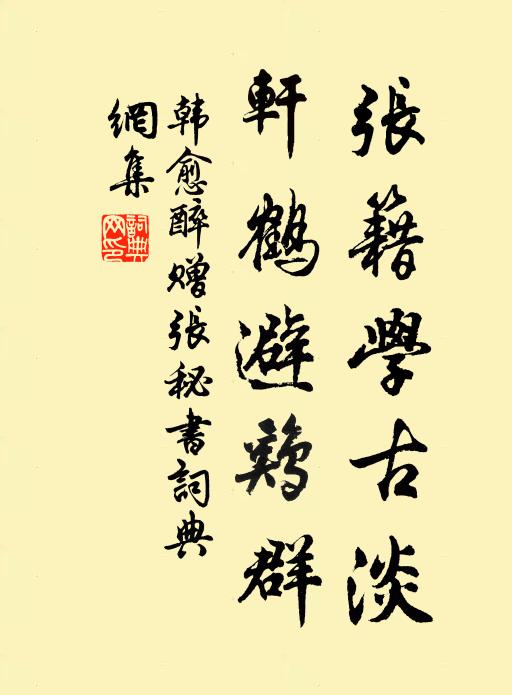 張籍學古淡
軒鶴避鷄群
韩愈醉赠張秘書詞典
網集
詞典
网印